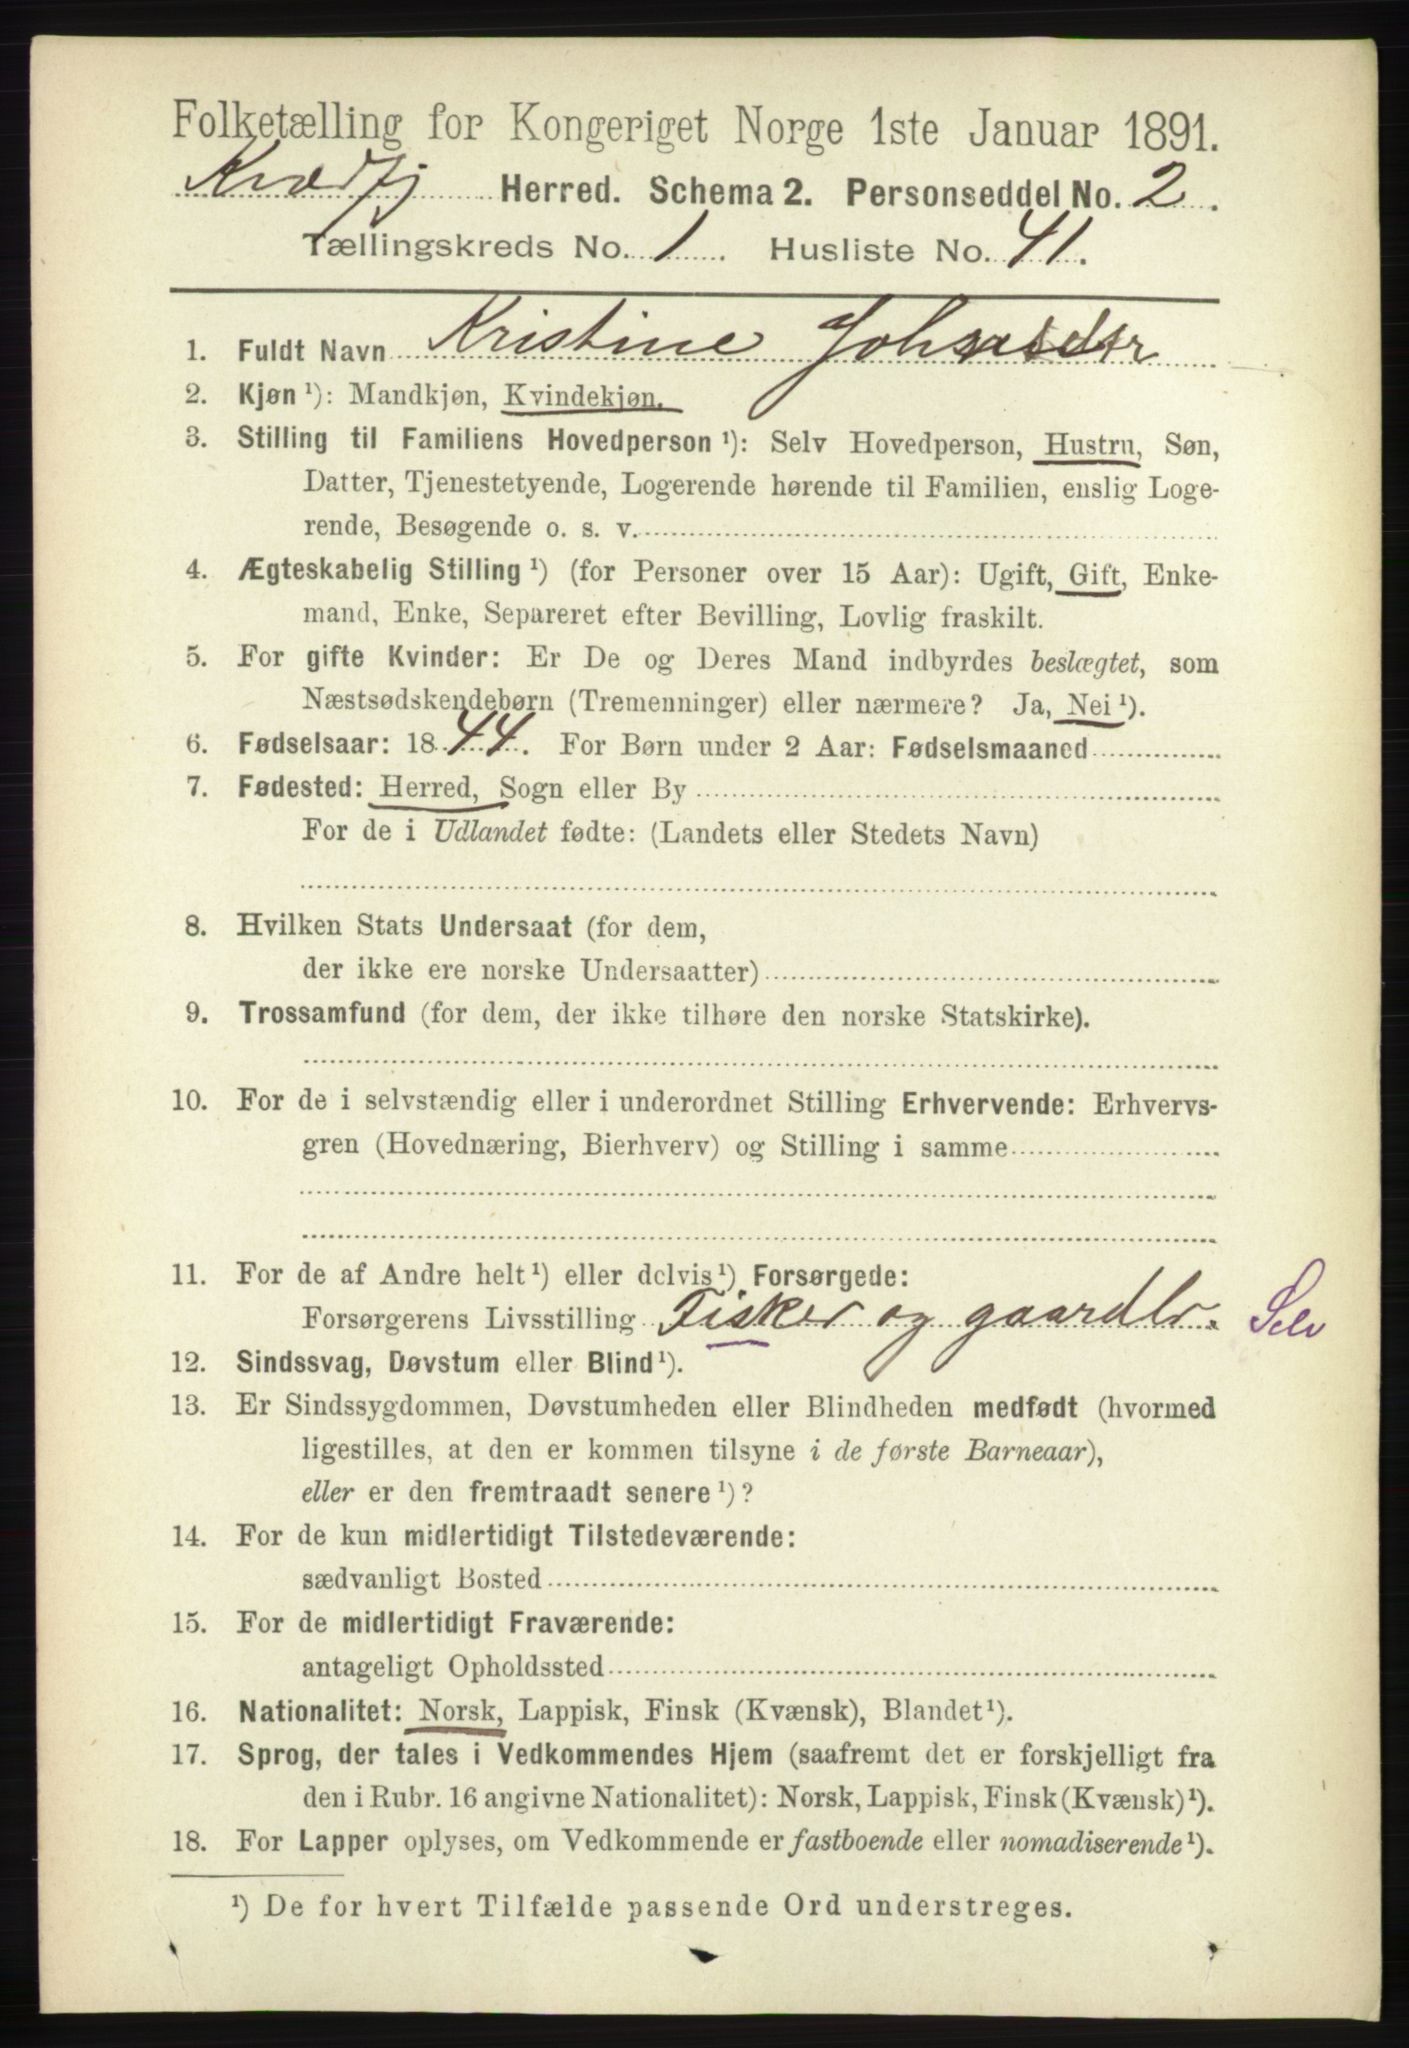 Folketælling for Kongeriget Norge 1ste Januar 1891.
Kvædfj Herred. Schema 2. Personseddel No. 2.
Tællingskreds No. 1. Husliste No. 41.
1. Fuldt Navn Kristine
2. Kjøn ¹): Mandkjøn, Kvindekjøn.
3. Stilling til Familiens Hovedperson ¹): Selv Hovedperson, Hustru, Søn,
Datter, Tjenestetyende, Logerende hørende til Familien, enslig Loge-
rende, Besøgende o. s. v.
4. Ægteskabelig Stilling ¹) (for Personer over 15 Aar): Ugift, Gift, Enke-
mand, Enke, Separeret efter Bevilling, Lovlig fraskilt.
5. For gifte Kvinder: Er De og Deres Mand indbyrdes beslægtet, som
Næstsødskendebørn (Tremenninger) eller nærmere? Ja, Nei ¹).
6. Fødselsaar: 1844. For Børn under 2 Aar: Fødselsmaaned
7. Fødested: Herred, Sogn eller By
For de i Udlandet fødte: (Landets eller Stedets Navn)
8. Hvilken Stats Undersaat (for dem,
der ikke ere norske Undersaatter)
9. Trossamfund (for dem, der ikke tilhøre den norske Statskirke).
10. For de i selvstændig eller i underordnet Stilling Erhvervende: Erhvervs-
gren (Hovednæring, Bierhverv) og Stilling i samme
11. For de af Andre helt ¹) eller delvis ¹) Forsørgede:
Forsørgerens Livsstilling Fisker og gaardbr. Selv
12. Sindssvag, Døvstum eller Blind ¹).
13. Er Sindssygdommen, Døvstumheden eller Blindheden medfødt (hvormed
ligestilles, at den er kommen tilsyne i de første Barneaar),
eller er den fremtraadt senere ¹)?
14. For de kun midlertidigt Tilstedeværende:
sædvanligt Bosted
15. For de midlertidigt Fraværende:
antageligt Opholdssted
16. Nationalitet: Norsk, Lappisk, Finsk (Kvænsk), Blandet ¹).
17. Sprog, der tales i Vedkommendes Hjem (saafremt det er forskjelligt fra
den i Rubr. 16 angivne Nationalitet): Norsk, Lappisk, Finsk (Kvænsk) ¹).
18. For Lapper oplyses, om Vedkommende er fastboende eller nomadiserende ¹).
¹) De for hvert Tilfælde passende Ord understreges.